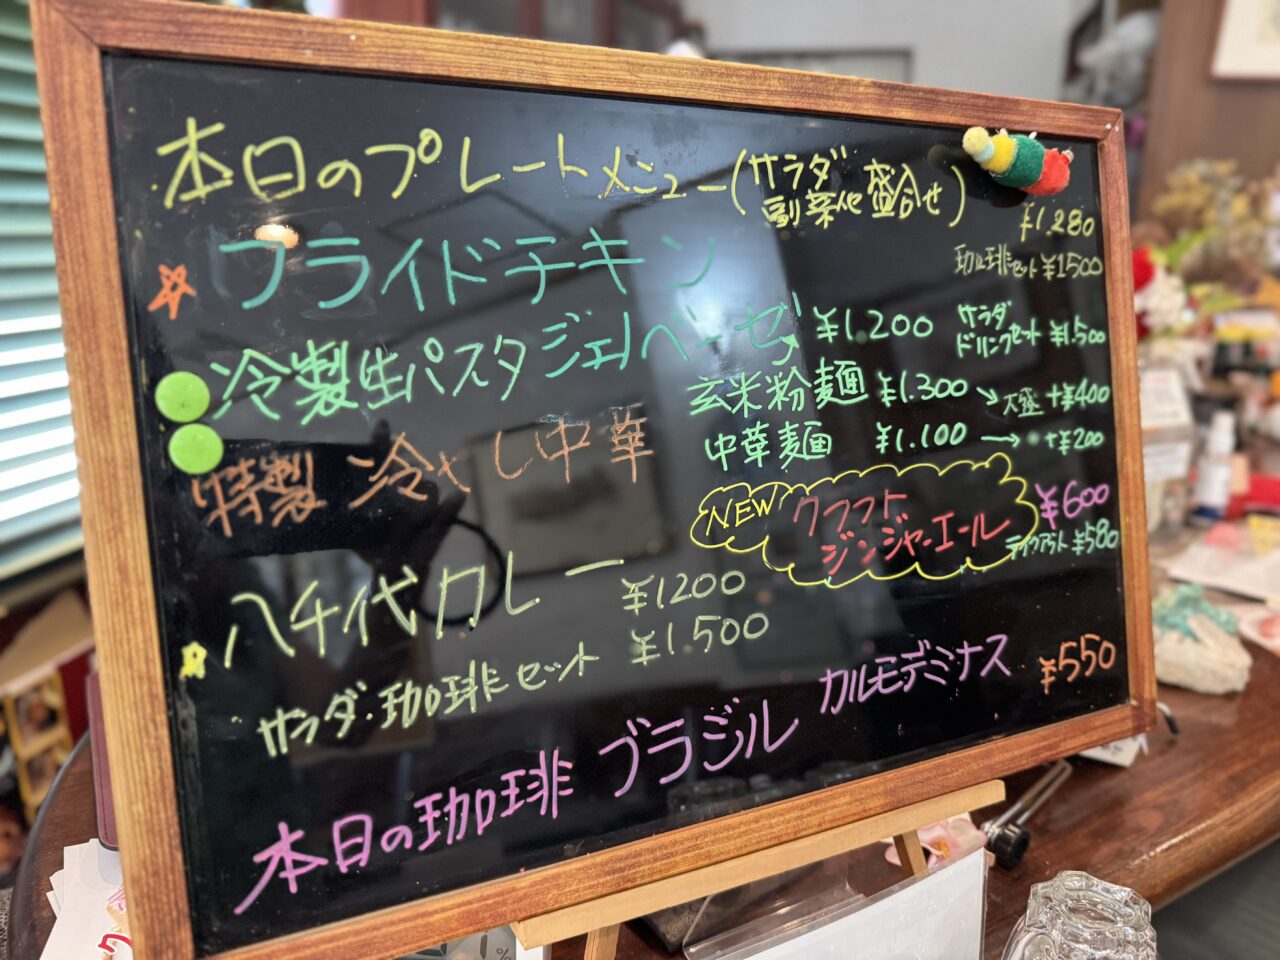 本日のプレートメニュー(サラダ 副菜他 盛合せ)
¥1.280
フライドチキン
珈琲セット ¥1500
冷製生パスタ ジェノベーゼ ¥1.200
サラダ ドリンクセット ¥1.500
特製 冷やし中華
玄米粉麺 ¥1.300 → 大盛 +¥400
中華麺 ¥1.100 → 〃 +¥200
NEW クラフト ジンジャーエール ¥600
テイクアウト ¥580
八千代カレー ¥1200
サラダ・珈琲セット ¥1.500
本日の珈琲 ブラジル カルモデミナス ¥550